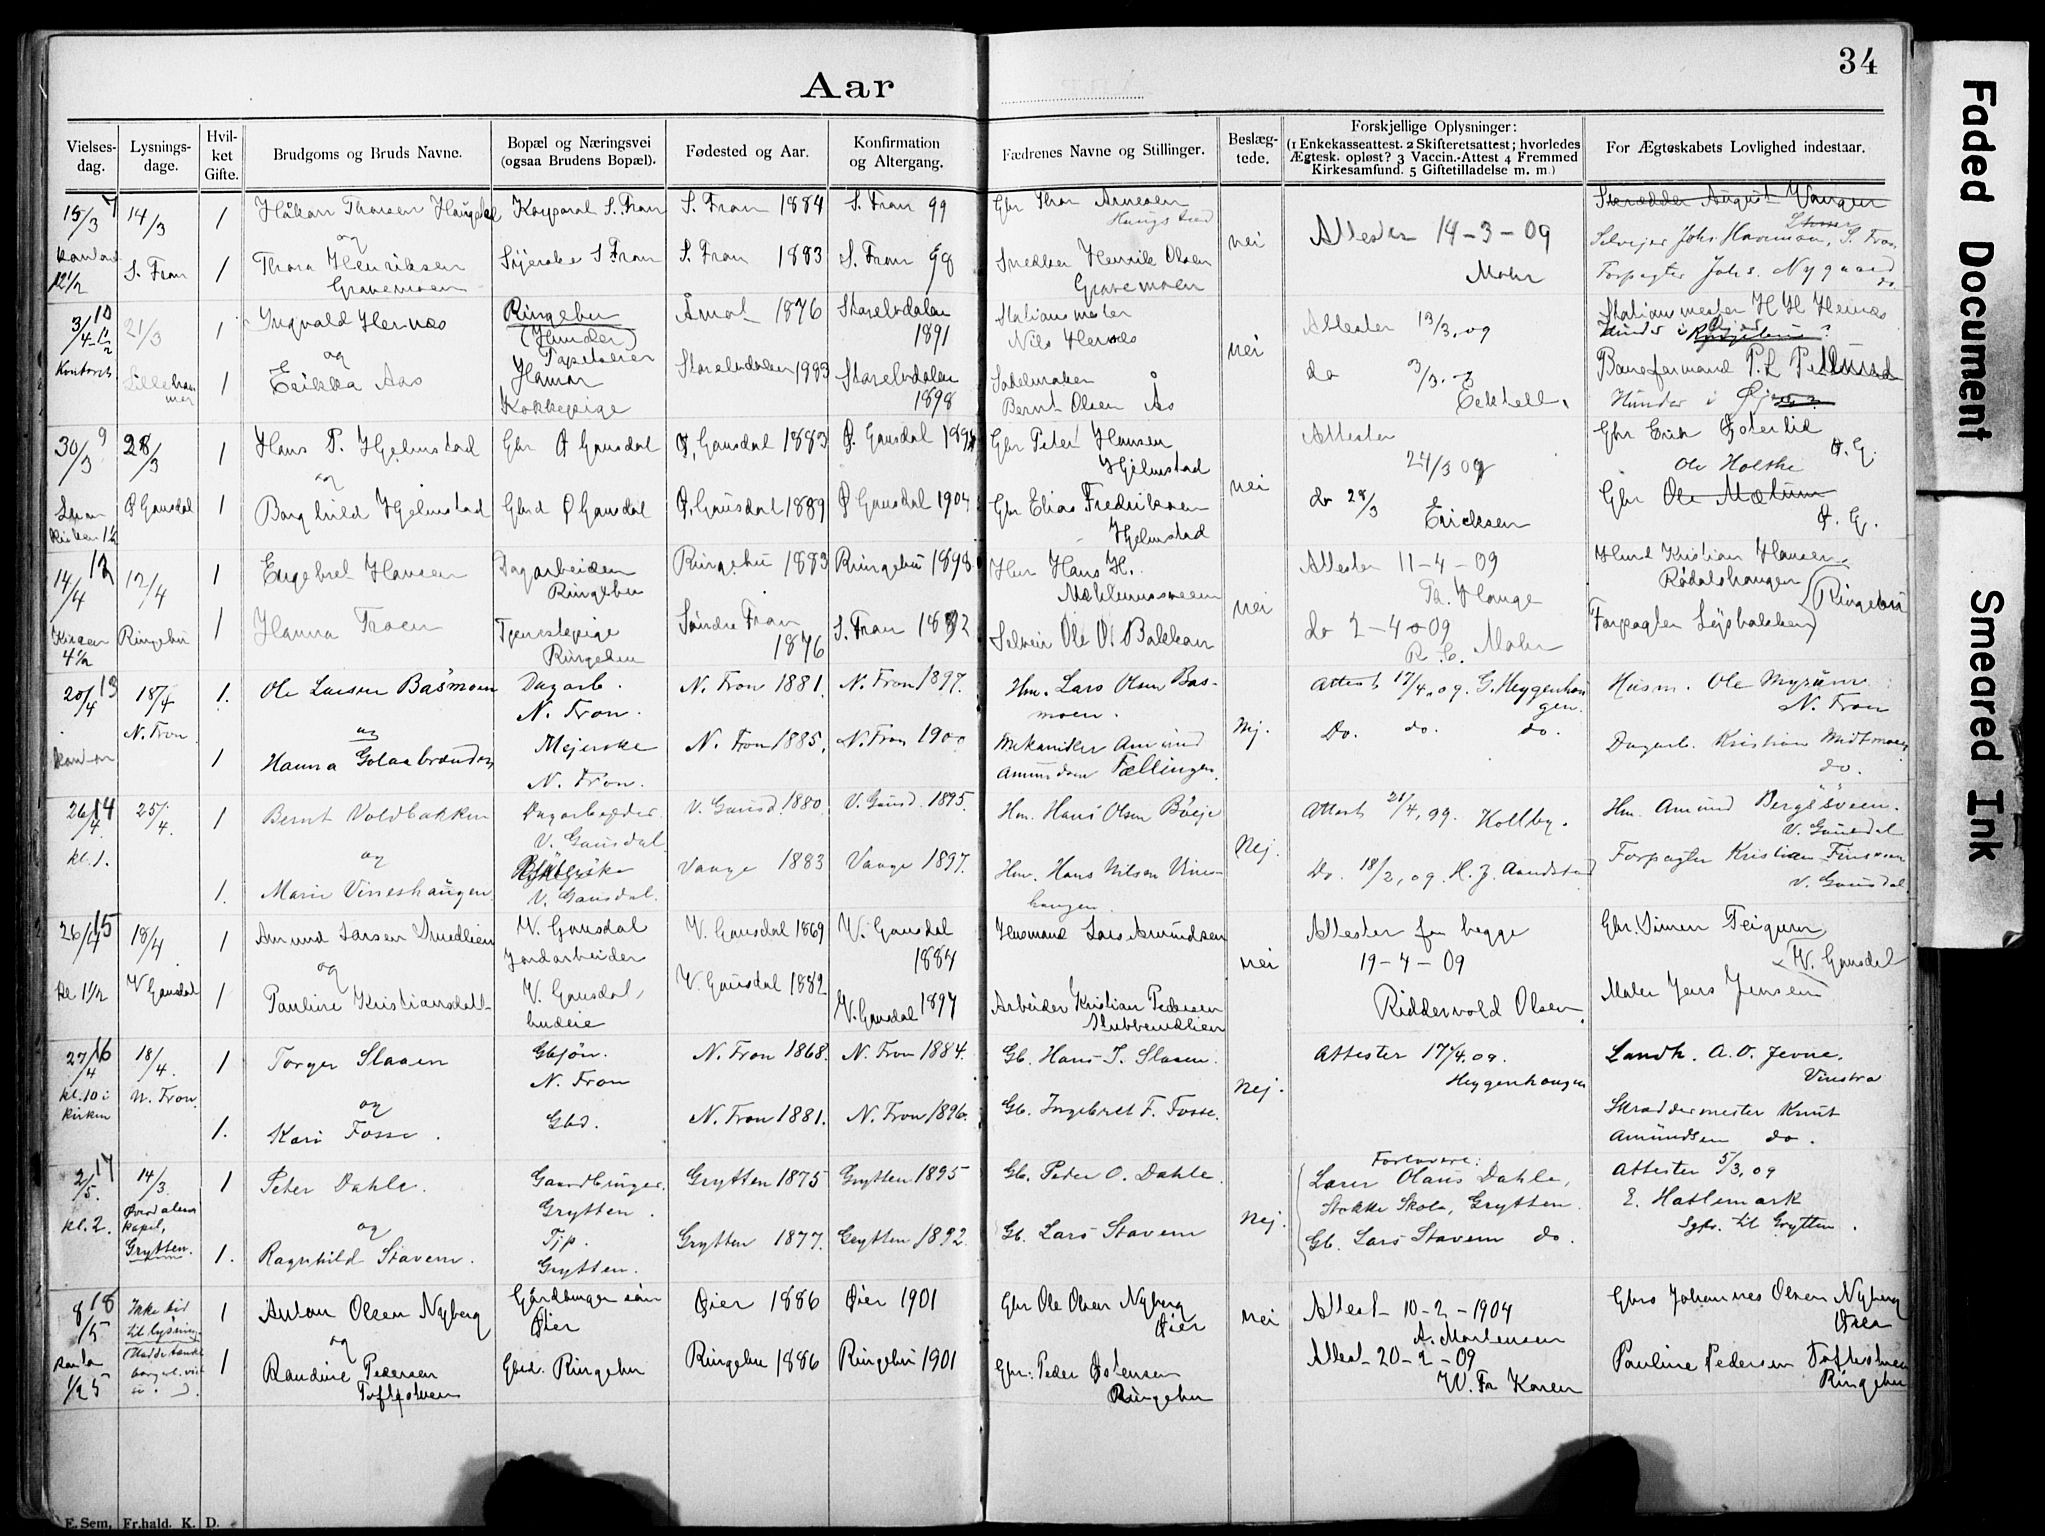 34
Aar
Faded Document
Smeared Ink
Vielses-
dag.
Lysnings-
dage.
Hvil-
ket
Gifte.
Brudgoms og Bruds Navne.
Bopæl og Næringsvei
(ogsaa Brudens Bopæl).
Fødested og Aar.
Konfirmation
og Altergang.
Fædrenes Navne og Stillinger.
Beslæg-
tede.
Forskjellige Oplysninger:
(1 Enkekasseattest. 2 Skifteretsattest; hvorledes
Ægtesk. opløst? 3 Vaccin.-Attest 4 Fremmed
Kirkesamfund. 5 Giftetilladelse m. m.)
For Ægteskabets Lovlighed indestaar.
15/3 7 14/3 1 Håkon Thorsen Korporal S. Fron S. Fron 1884 S. Fron 99 Gbr Thor Arnesen
og
12 1/2 S. Fron 1 Thora Henriksen Syerske S Fron S. Fron 1883 S. Fron 98 Snedker Henrik Olsen nei Attester 14-3-09 Selveier Johs. S. Fron
Gravemoen Gravemoen Mohr Forpagter Johs. Nygaard do.
3/4 10 21/3 1 Ingvald Hernæs Ringebu Åmot 1876 Storelvdalen Stationsmester Attester 13/3, 09 Stationsmester H H Hernæs
(Hunder) 1891 Nils Hernæs nei
og Tapetserer
Kontoret Lilleham 1 Erikka Aas Hamar Storelvdalen 1883 Storelvdalen Sadelmaker do 3/3. Baneformand P. L.
mer Kokkepige 1898 Bernt Olsen Ås Hunder i
30/3 9 28/3 1 Hans P. Hjelmstad Gbr Ø Gausdal Ø. Gausdal 1883 Ø. Gausdal Gbr Peter Hansen Attester Gbr Erik
og Hjelmstad nei 24/3 09 Ole Holthe Ø. G.
Ø Gausdal 1 Borghild Hjelmstad Gbrd Ø Gausdal Ø. Gausdal 1889 Ø Gausdal 1904 Gbr Elias Fredriksen do 28/3 Gbr Ole Mælum
Hjelmstad Ericksen Ø. G.
14/4 12 12/4 1 Engebret Hansen Dagarbeider Ringebu 1883 Ringebu 1898 Hmr Hans H. Attester 11-4-09 Hmd Kristian Hansen
Ringebu nei Th. Hauge Rødalshaugen
Kirken Ringebu 1 Hanna Troen Tjenestepige Søndre Fron S. Fron 1892 Selveier Ole O. Bakken do 2-4-09 Forpagter Ringebu
4 1/2 Ringebu 1876 Mohr
20/4 13 18/4 1. Ole Larsen Basmoen Dagarb. N. Fron 1881. N. Fron 1897. Hm. Lars Olsen Bas- Attest 17/4. 09. G. Heyggenhau Husm. Ole Myrum
N. Fron. og N. Fron. moen. Nej. gen. N. Fron
1 Hanna Golaabranden Mejerske N. Fron 1885. N. Fron 1900 Mekaniker Amund Do. do. do. Dagarb. Kristian Midtmoen
N. Fron. Amundsen Fællingen. do.
26/4 14 25/4. 1 Bernt Voldbakken Dagarbejder V. Gausd. 1880 V. Gausd. 1895. Hm. Hans Olsen Bøeje Attest 21/4, 09. Kolby. Hm. Amund Bergsveen.
kl. 1. og V. Gausdal Nej. V. Gausdal
1. Marie Vinneshaugen V. Gausdal. Vaage 1883 Vaage 1897. Hm. Hans Nilsen Vinnes- Do. 18/2, 09. H. J. Aandstad Forpagter Kristian Finsveen
haugen. V. Gausdal.
26/4 15 18/4 1 Amund Larsen Smedlien V. Gausdal V. Gausdal 1869 V. Gausdal Husmand Lars Amundsen Attester for begge Gbr. Simen Feigum
og Jordarbeider 1884 nei 19-4-09 V. Gausdal
kl 1 1/2 V Gausdal 1 Pauline Kristiansdatt- V. Gausdal, V. Gausdal 1882 V. Gausdal 1897 Arbeider Kristian Pedersen Riddervold Olsen. Maler Jens Jensen
budeie Stubbendlien
27/4 16 18/4. 1 Torger Slaaen Gbsøn. N. Fron 1868. N. Fron 1884. Gb. Hans T. Slaaen. Attester 17/4. 09. Landh. A. O. Jevne.
kl. 10 i N. Fron. N. Fron Nej. Heyggenhaugen Vinstra
kirken og
1. Kari Fosse. Gbd. N. Fron 1881. N. Fron 1896. Gb. Ingebret F. Fosse. Skræddermester Knut
Amundsen do.
2/5. 17 14/3. 1 Peter Dahle. Gaardbruger. Grytten 1875 Grytten 1895 Gb. Peder O. Dahle. Forlovere: Attester 5/3, 09
Øverdalens Grytten. Lærer Olaus Dahle, E. Hatlemark
kl. 2. kapel, og Nej. Stokke Skole, Grytten. Sgpr. til Grytten.
Grytten. 1. Ragnhild Stavem. Tjp. Grytten 1877. Grytten 1892. Gb. Lars Stavem Gb. Lars Stavem do.
Grytten.
8/5 18 Ikke tid 1 Anton Olsen Nyberg Gårdbruger søn Øier 1886 Øier 1901 Gbr Ole Olsen Nyberg nei Attest 10-2-1904 Gbrs Johannes Olsen Nyberg
til lysning. og Øier Øier A. Mortensen Øier
1 Randine Pedersen Gbrd. Ringebu Ringebu 1886 Ringebu 1901 Gbr: Peder Østensen Attest 20-2-09 Pauline Pedersen Toftestuen
Toftestuen Ringebu W. Fr Koren Ringebu
F. Sem, Fr.hald. K. D.